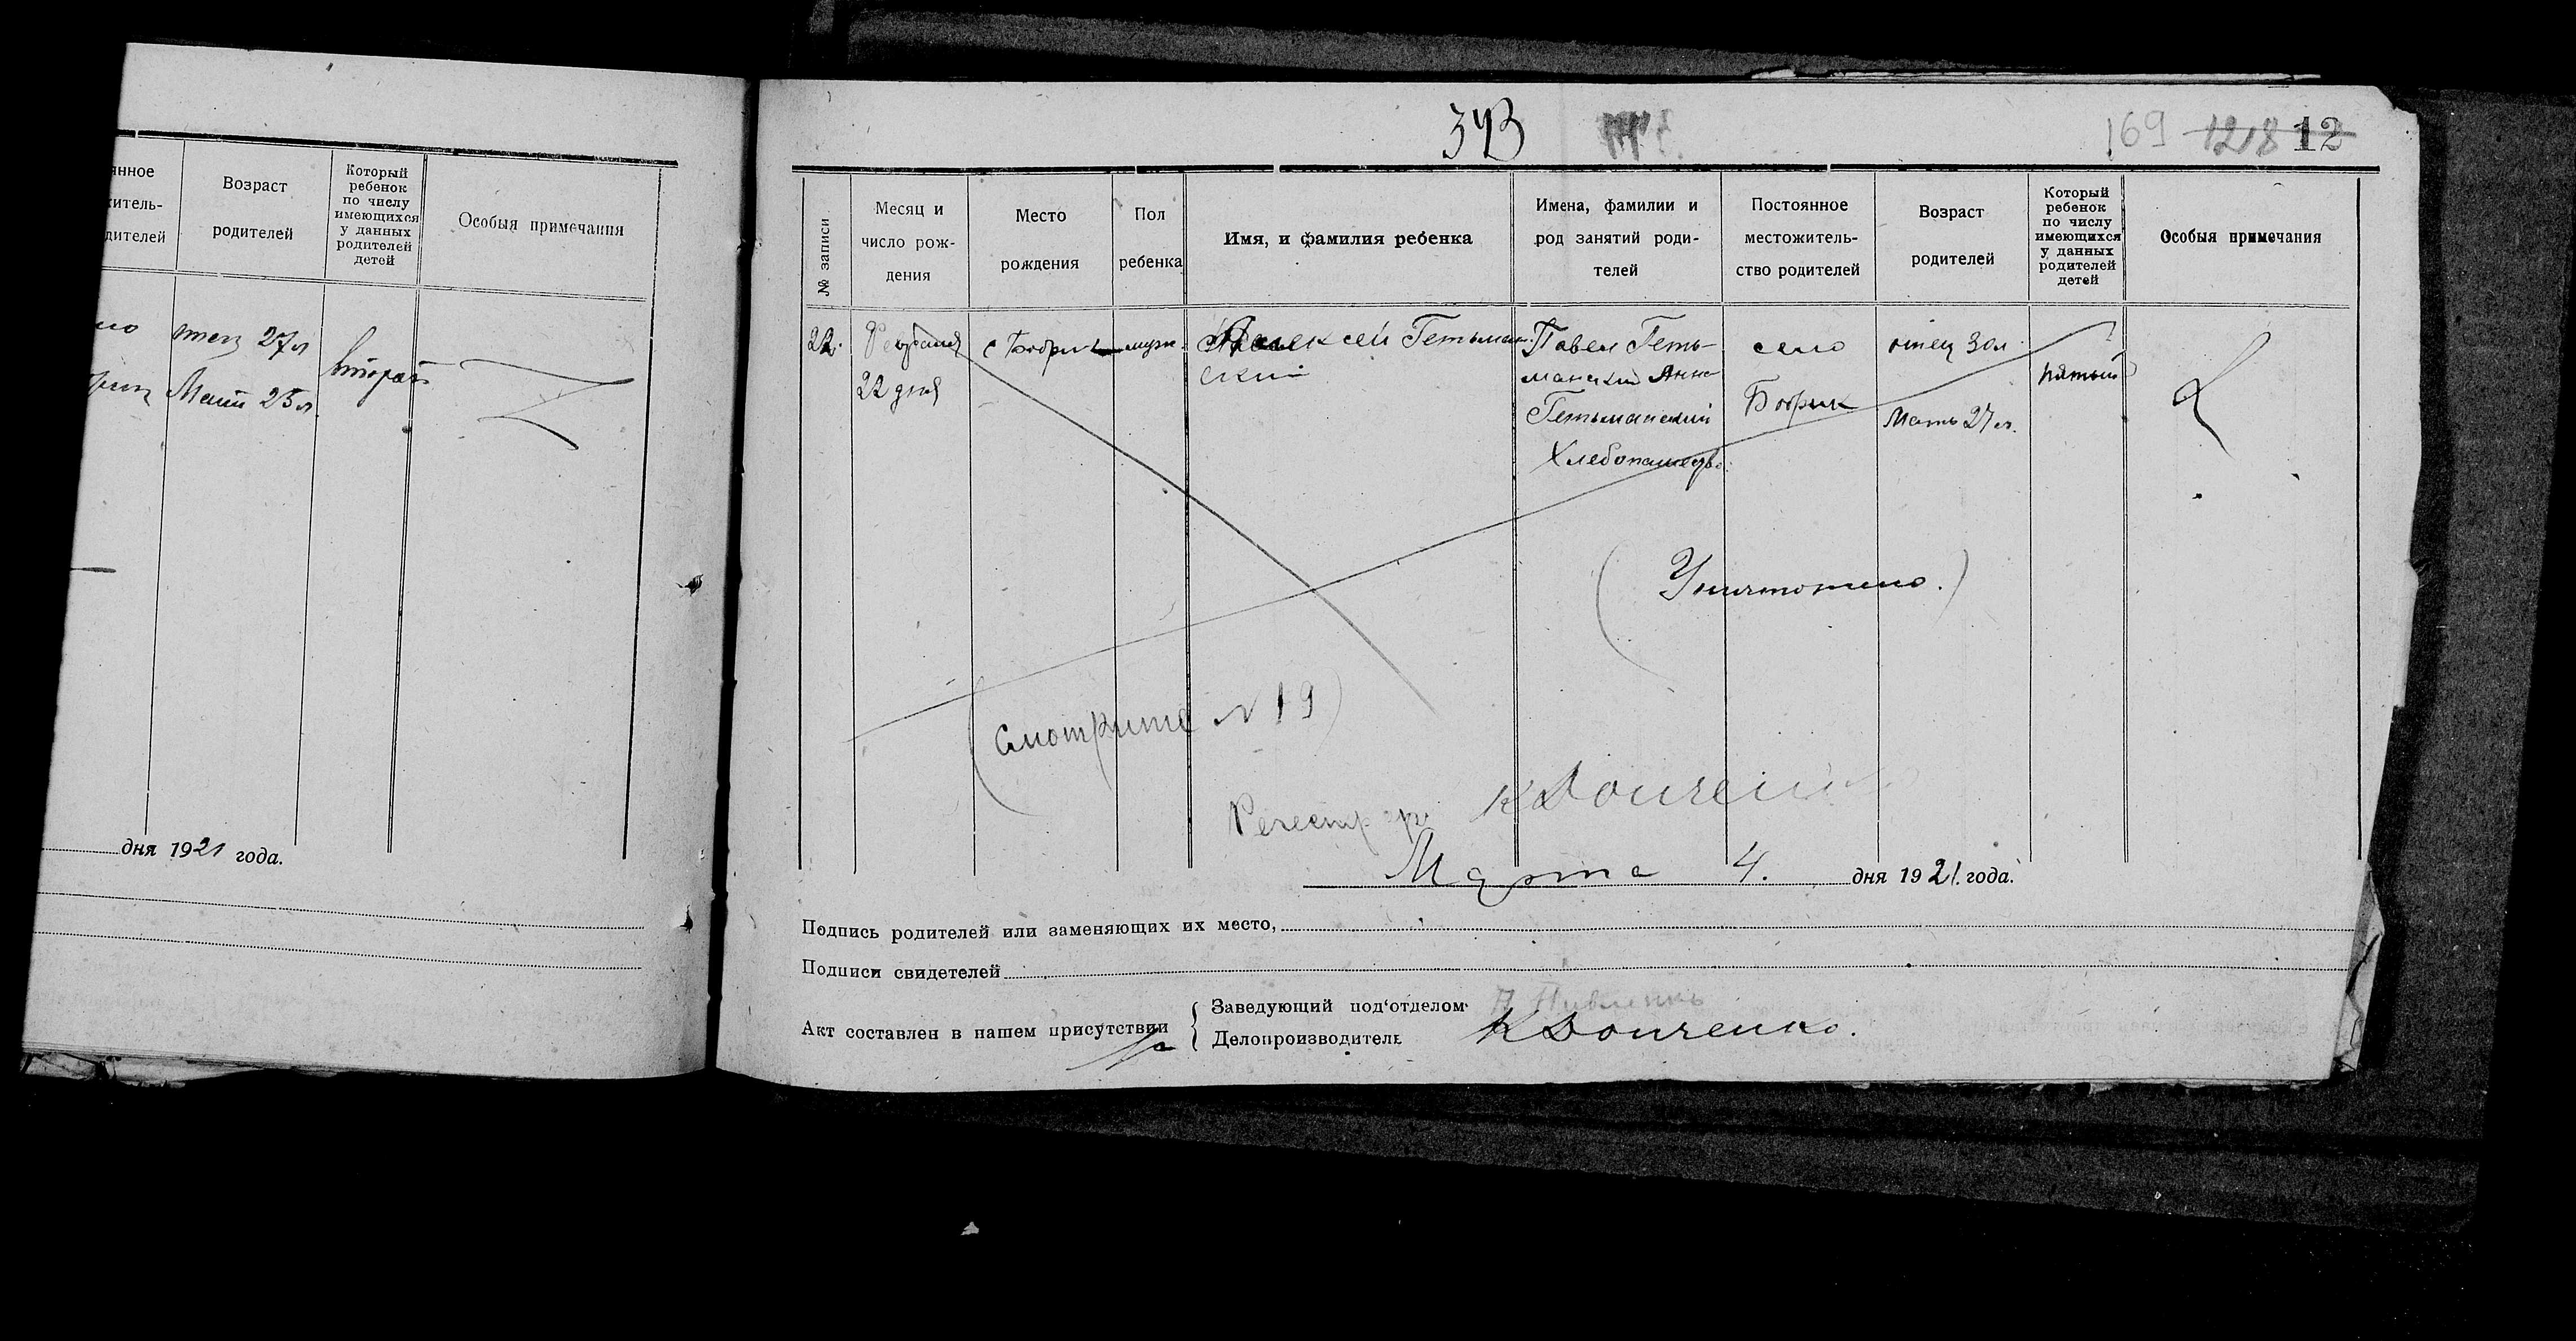 янное
житель-
дителей
Возраст
родителей
Который
ребенок
по числу
имеющихся
у данных
родителей
детей
Особыя примечания
отец 27 л
Мати 25 л.
второй
дня 1921 года.
343
169 1218 12
№ записи
Месяц и
число рож-
дения
Место
рождения
Пол
ребенка
Имя, и фамилия ребенка
Имена, фамилии и
род занятий роди-
телей
Постоянное
местожитель-
ство родителей
Возраст
родителей
Который
ребенок
по числу
имеющихся
у данных
родителей
детей
Особыя примечания
22.
Февраля
22 дня
с Бобрик
муж
Алексей Гетьман-
ский
Павел Геть-
манский Анна
Гетьманский
Хлебопашество
село
Бобрик
отец 30 л.
Мать 27 л.
пятый
(Уничтожено.)
(Смотрите № 19)
К Донченко
Марта 4. дня 1921. года.
Подпись родителей или заменяющих их место,
Подписи свидетелей
Акт составлен в нашем присутствии
Заведующий под'отделом
Делопроизводитель К Донченко.